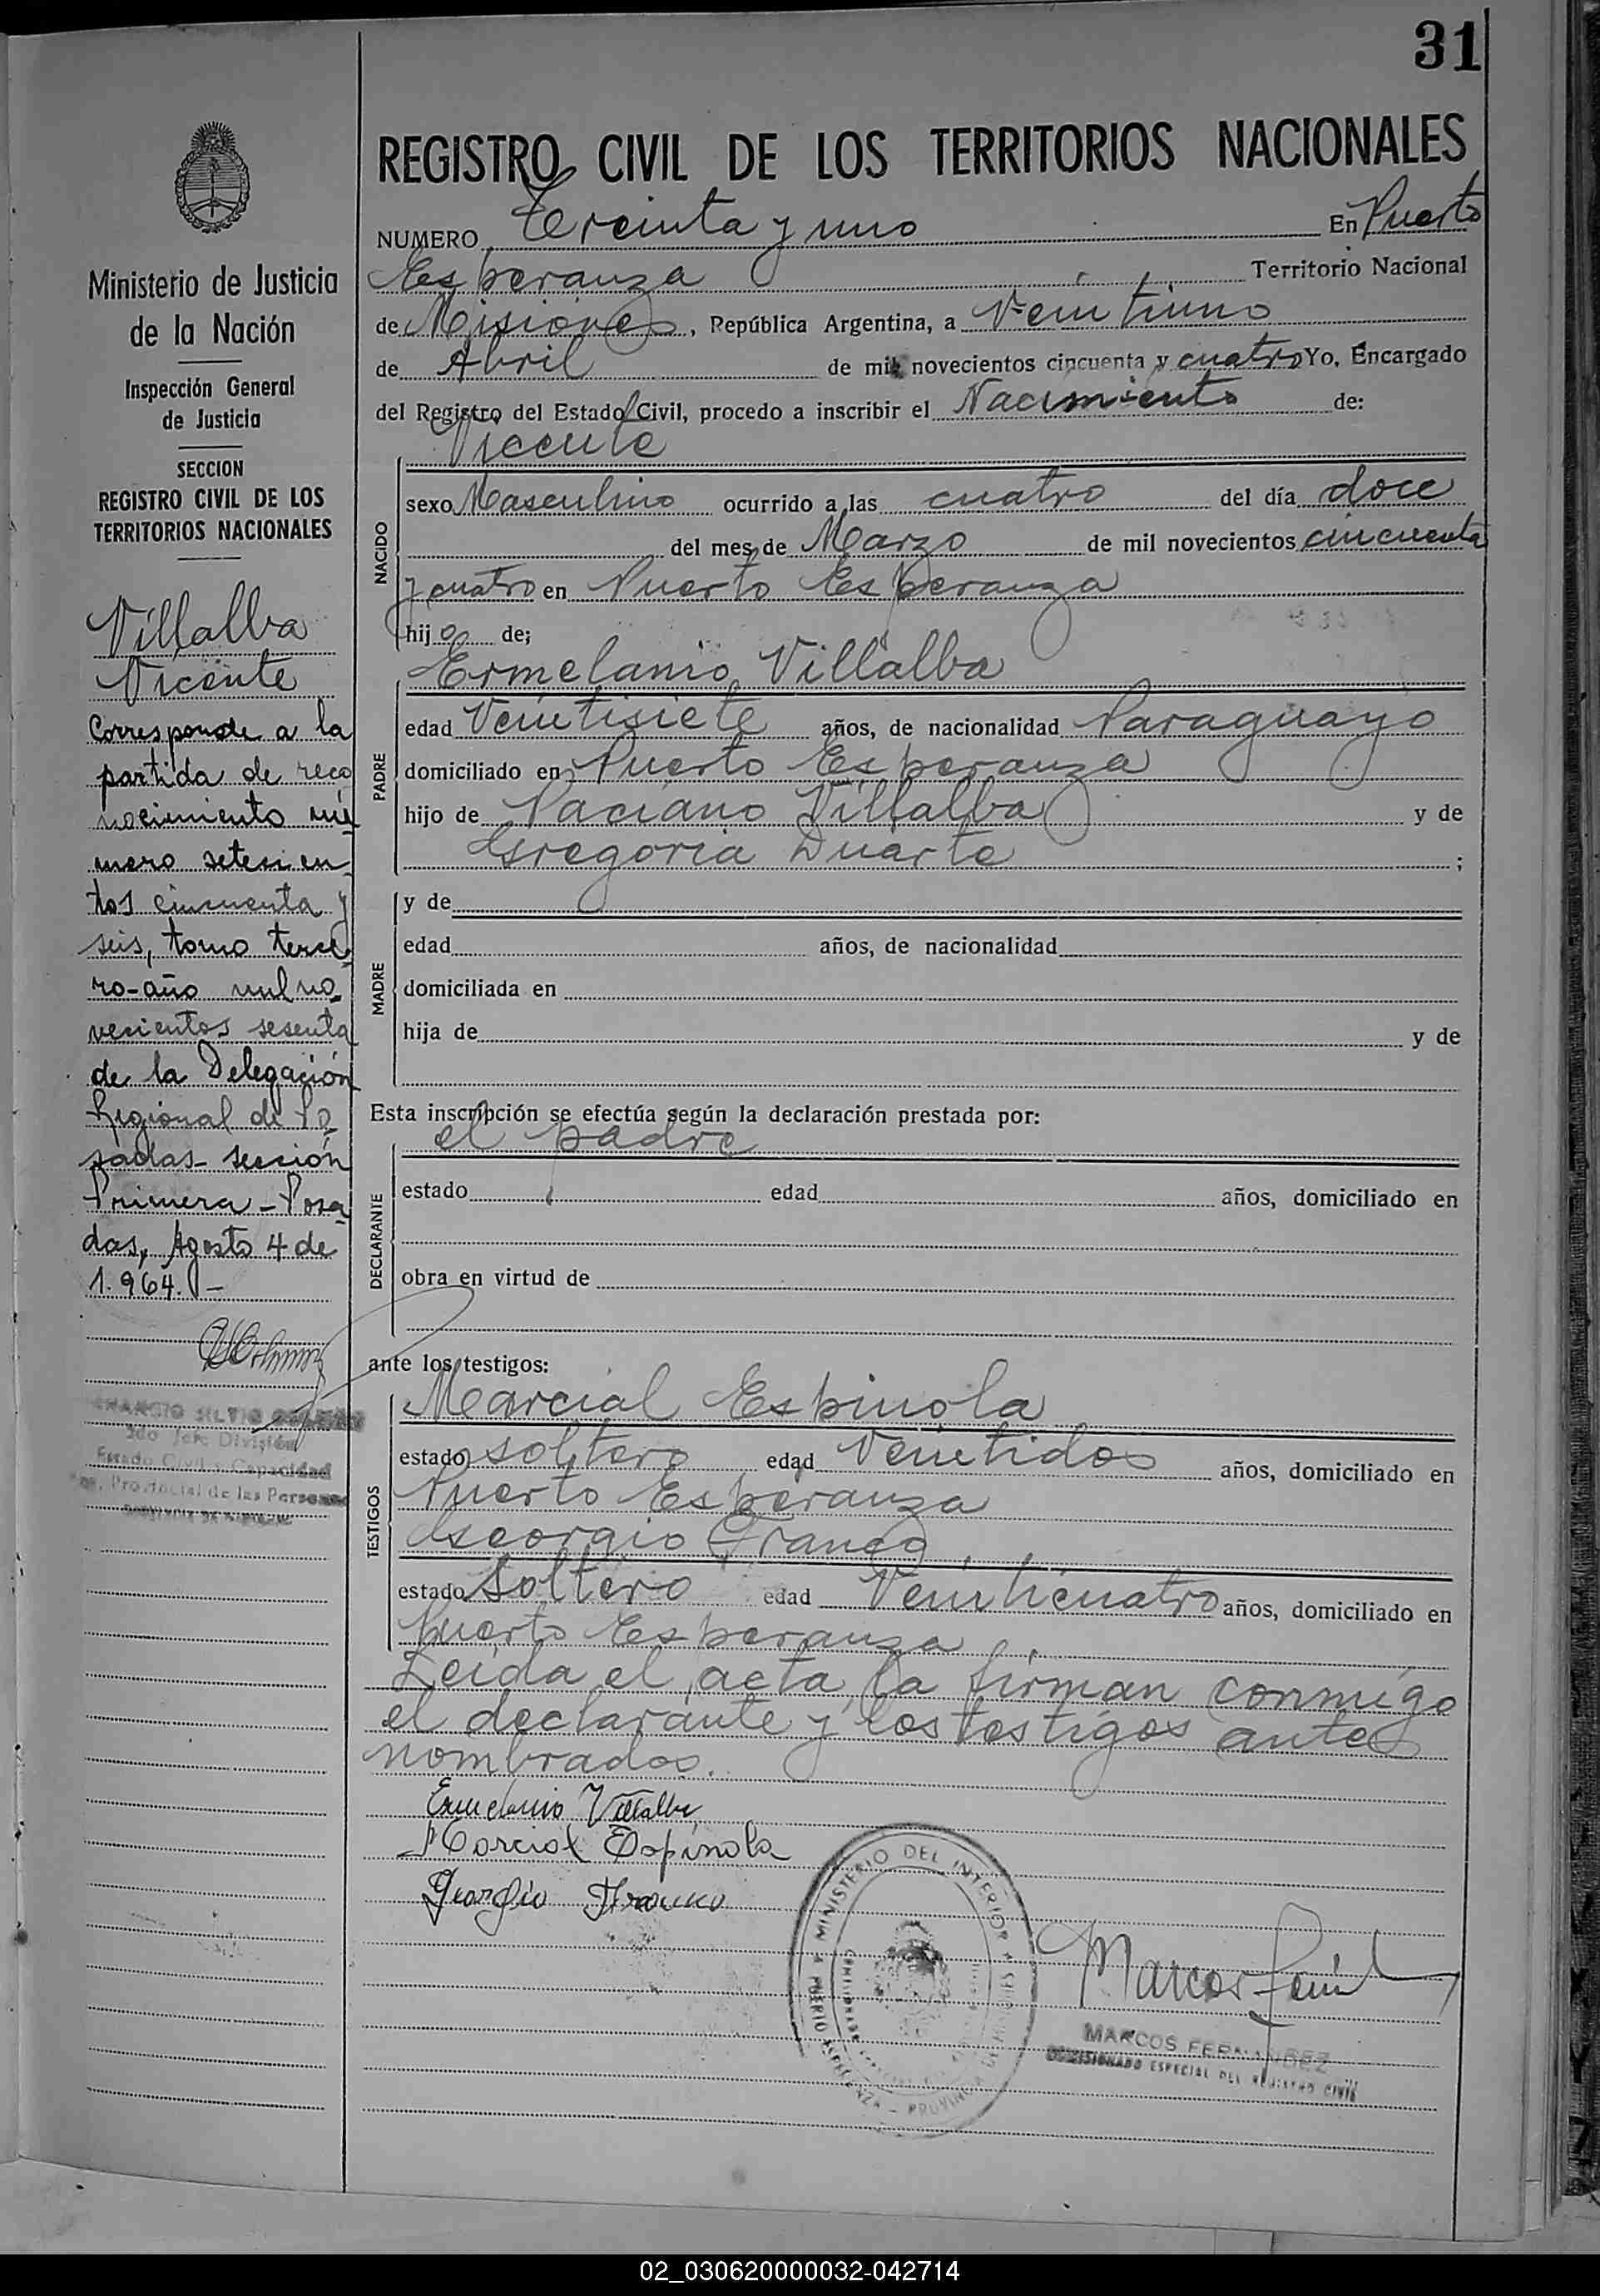 31
REGISTRO CIVIL DE LOS TERRITORIOS NACIONALES
NUMERO Treinta y uno En Puerto
Esperanza Territorio Nacional
de Misiones, República Argentina, a Veintiuno
de Abril de mil novecientos cincuenta y cuatro Yo, Encargado
del Registro del Estado Civil, procedo a inscribir el Nacimiento de:
Vicente
NACIDO
sexo Masculino ocurrido a las cuatro del día doce
del mes de Marzo de mil novecientos cincuenta
y cuatro en Puerto Esperanza
hijo de;
Ermelanio Villalba
PADRE
edad Veintisiete años, de nacionalidad Paraguayo
domiciliado en Puerto Esperanza
hijo de Paciano Villalba y de
Gregoria Duarte ;
MADRE
y de
edad años, de nacionalidad
domiciliada en
hija de y de
Esta inscripción se efectúa según la declaración prestada por:
el padre
DECLARANTE
estado edad años, domiciliado en
obra en virtud de
ante los testigos:
Marcial Espinola
TESTIGOS
estado soltero edad Veintidos años, domiciliado en
Puerto Esperanza
Georgio Franco
estado Soltero edad Veinticuatro años, domiciliado en
Puerto Esperanza
Leida el acta, la firman conmigo
el declarante y los testigos antes
nombrados.
Ermelanio Villalba
Marcial Espinola
Georgio Franco
MINISTERIO DEL INTERIOR
PUERTO ESPERANZA - PROVINCIA DE
MARCOS FERNANDEZ
COMISIONADO ESPECIAL DEL REGISTRO CIVIL
Ministerio de Justicia
de la Nación
Inspección General
de Justicia
SECCION
REGISTRO CIVIL DE LOS
TERRITORIOS NACIONALES
Villalba
Vicente
Corresponde a la
partida de reco
nocimiento nú
mero setecien
tos cincuenta y
seis, tomo terce
ro-año mil no
vecientos sesenta
de la Delegación
Regional de Po
sadas- sección
Primera - Posa
das, Agosto 4 de
1.964.-
SILVIO
2do Jefe División
Estado Civil y Capacidad
Provincial de las Personas
02_030620000032-042714